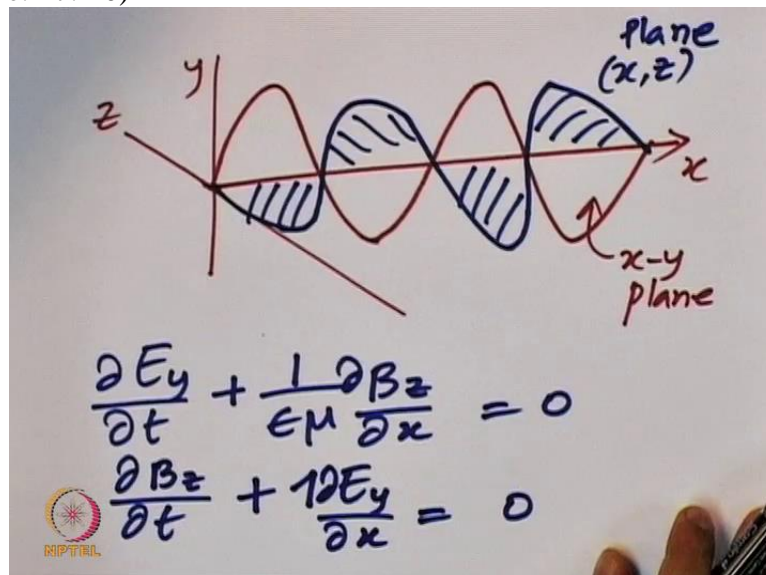 plane
(x, z)
y
z
x
x-y
plane
∂Ey/∂t + 1/ϵμ ∂Bz/∂x = 0
∂Bz/∂t + 1∂Ey/∂x = 0
NPTEL